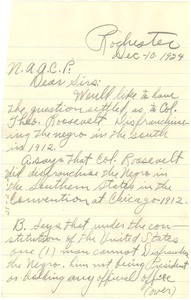 Rochester
Dec-10-1924
N.A.A.C.P.
Dear Sirs:
Would like to have
the question settled as to Col.
Theo. Roosevelt Disfranchise-
ing the negro in the south
in 1912.
A. says that Col. Roosevelt
did disfranchise the Negro in
the southern states in the
convention at Chicago-1912.
B. Says that under the con-
stitution of The United States
one (1) man cannot Disfranchise
the Negro. him not being President
or holding any official office
(over)